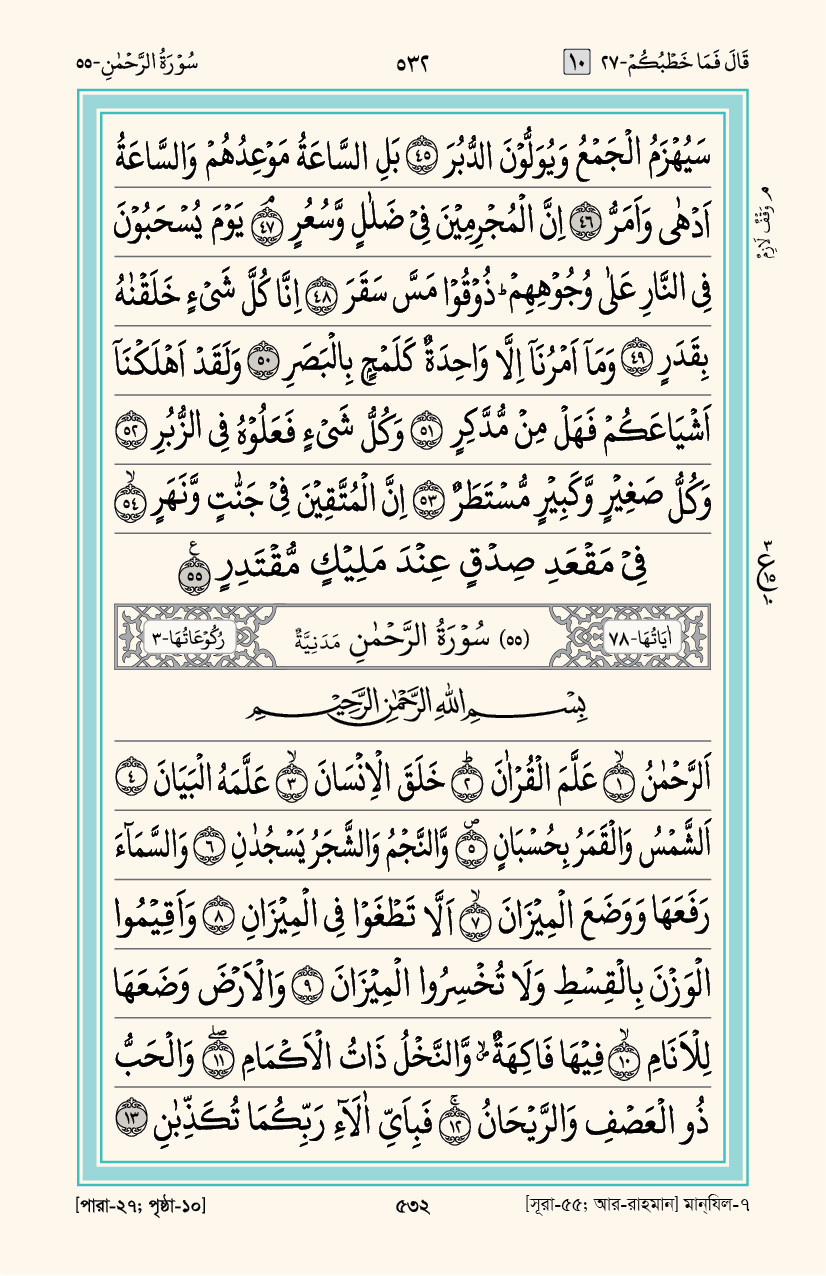 قَالَ فَمَا خَطْبُكُمْ-٢٧ ١٠ ٥٣٢ سُوْرَةُ الرَّحْمٰنِ-٥٥
سَيُهْزَمُ الْجَمْعُ وَيُوَلُّوْنَ الدُّبُرَ ﴿٤٥﴾ بَلِ السَّاعَةُ مَوْعِدُهُمْ وَالسَّاعَةُ
اَدْهٰى وَاَمَرُّ ﴿٤٦﴾ اِنَّ الْمُجْرِمِيْنَ فِيْ ضَلٰلٍ وَّسُعُرٍ ﴿٤٧﴾ۘ يَوْمَ يُسْحَبُوْنَ
م وَقْفٌ لَازِمٌ
فِى النَّارِ عَلٰى وُجُوْهِهِمْ ؕ ذُوْقُوْا مَسَّ سَقَرَ ﴿٤٨﴾ اِنَّا كُلَّ شَيْءٍ خَلَقْنٰهُ
بِقَدَرٍ ﴿٤٩﴾ وَمَآ اَمْرُنَآ اِلَّا وَاحِدَةٌ كَلَمْحٍ بِالْبَصَرِ ﴿٥٠﴾ وَلَقَدْ اَهْلَكْنَآ
اَشْيَاعَكُمْ فَهَلْ مِنْ مُّدَّكِرٍ ﴿٥١﴾ وَكُلُّ شَيْءٍ فَعَلُوْهُ فِى الزُّبُرِ ﴿٥٢﴾
وَكُلُّ صَغِيْرٍ وَّكَبِيْرٍ مُّسْتَطَرٌ ﴿٥٣﴾ اِنَّ الْمُتَّقِيْنَ فِيْ جَنّٰتٍ وَّنَهَرٍ ﴿٥٤﴾ۙ
فِيْ مَقْعَدِ صِدْقٍ عِنْدَ مَلِيْكٍ مُّقْتَدِرٍ ﴿٥٥﴾ ع
٣ ع ١٥ ١٠
اٰيَاتُهَا-٧٨ (٥٥) سُوْرَةُ الرَّحْمٰنِ مَدَنِيَّةٌ رُكُوْعَاتُهَا-٣
بِسْمِ اللّٰهِ الرَّحْمٰنِ الرَّحِيْمِ
اَلرَّحْمٰنُ ﴿١﴾ۙ عَلَّمَ الْقُرْاٰنَ ﴿٢﴾ؕ خَلَقَ الْاِنْسَانَ ﴿٣﴾ۙ عَلَّمَهُ الْبَيَانَ ﴿٤﴾
اَلشَّمْسُ وَالْقَمَرُ بِحُسْبَانٍ ﴿٥﴾ص وَّالنَّجْمُ وَالشَّجَرُ يَسْجُدٰنِ ﴿٦﴾ وَالسَّمَآءَ
رَفَعَهَا وَوَضَعَ الْمِيْزَانَ ﴿٧﴾ۙ اَلَّا تَطْغَوْا فِى الْمِيْزَانِ ﴿٨﴾ وَاَقِيْمُوا
الْوَزْنَ بِالْقِسْطِ وَلَا تُخْسِرُوا الْمِيْزَانَ ﴿٩﴾ وَالْاَرْضَ وَضَعَهَا
لِلْاَنَامِ ﴿١٠﴾ۙ فِيْهَا فَاكِهَةٌ وَّالنَّخْلُ ذَاتُ الْاَكْمَامِ ﴿١١﴾ۖ وَالْحَبُّ
ذُو الْعَصْفِ وَالرَّيْحَانُ ﴿١٢﴾ۚ فَبِاَيِّ اٰلَآءِ رَبِّكُمَا تُكَذِّبٰنِ ﴿١٣﴾
[পারা-২৭; পৃষ্ঠা-১০] ৫৩২ [সূরা-৫৫; আর-রাহমান] মান্‌যিল-৭